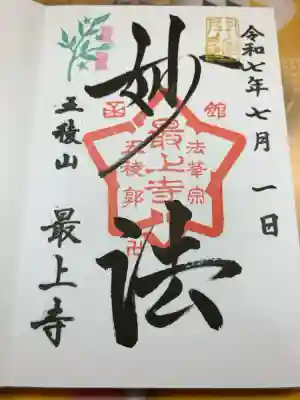 令和七年七月一日
妙法
函館
法華宗
最上寺
五稜郭
卍
五稜山
最上寺